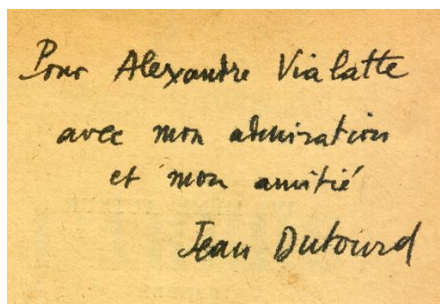 Pour Alexandre Vialatte
avec mon admiration
et mon amitié
Jean Dutourd